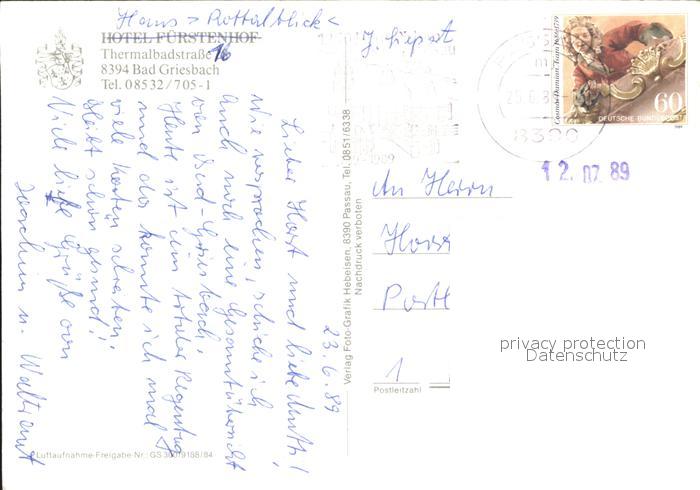 Haus > Rottalblick <
HOTEL FÜRSTENHOF
Thermalbadstraße 16
8394 Bad Griesbach
Tel. 08532 / 705 - 1
23.6.89
Lieber Horst und liebe Mutti!
Wie versprochen, schicke ich
Auch noch eine Gesamtübersicht
von Bad-Griesbach.
Heute ist ein totaler Regentag
und da konnte ich mal
viele Karten schreiben.
Bleibt schön gesund!
Viele liebe Grüße von
Joachim u. Waltraut
Luftaufnahme-Freigabe-Nr.: GS 300/9188/84
Verlag Foto-Grafik Hebelsen, 8390 Passau, Tel. 0851/6338
Nachdruck verboten
1909
8390
Cosmas Damian Asam
60
DEUTSCHE BUNDESPOST
12. 07. 89
An Herrn
Horst
1
Postleitzahl
privacy protection
Datenschutz